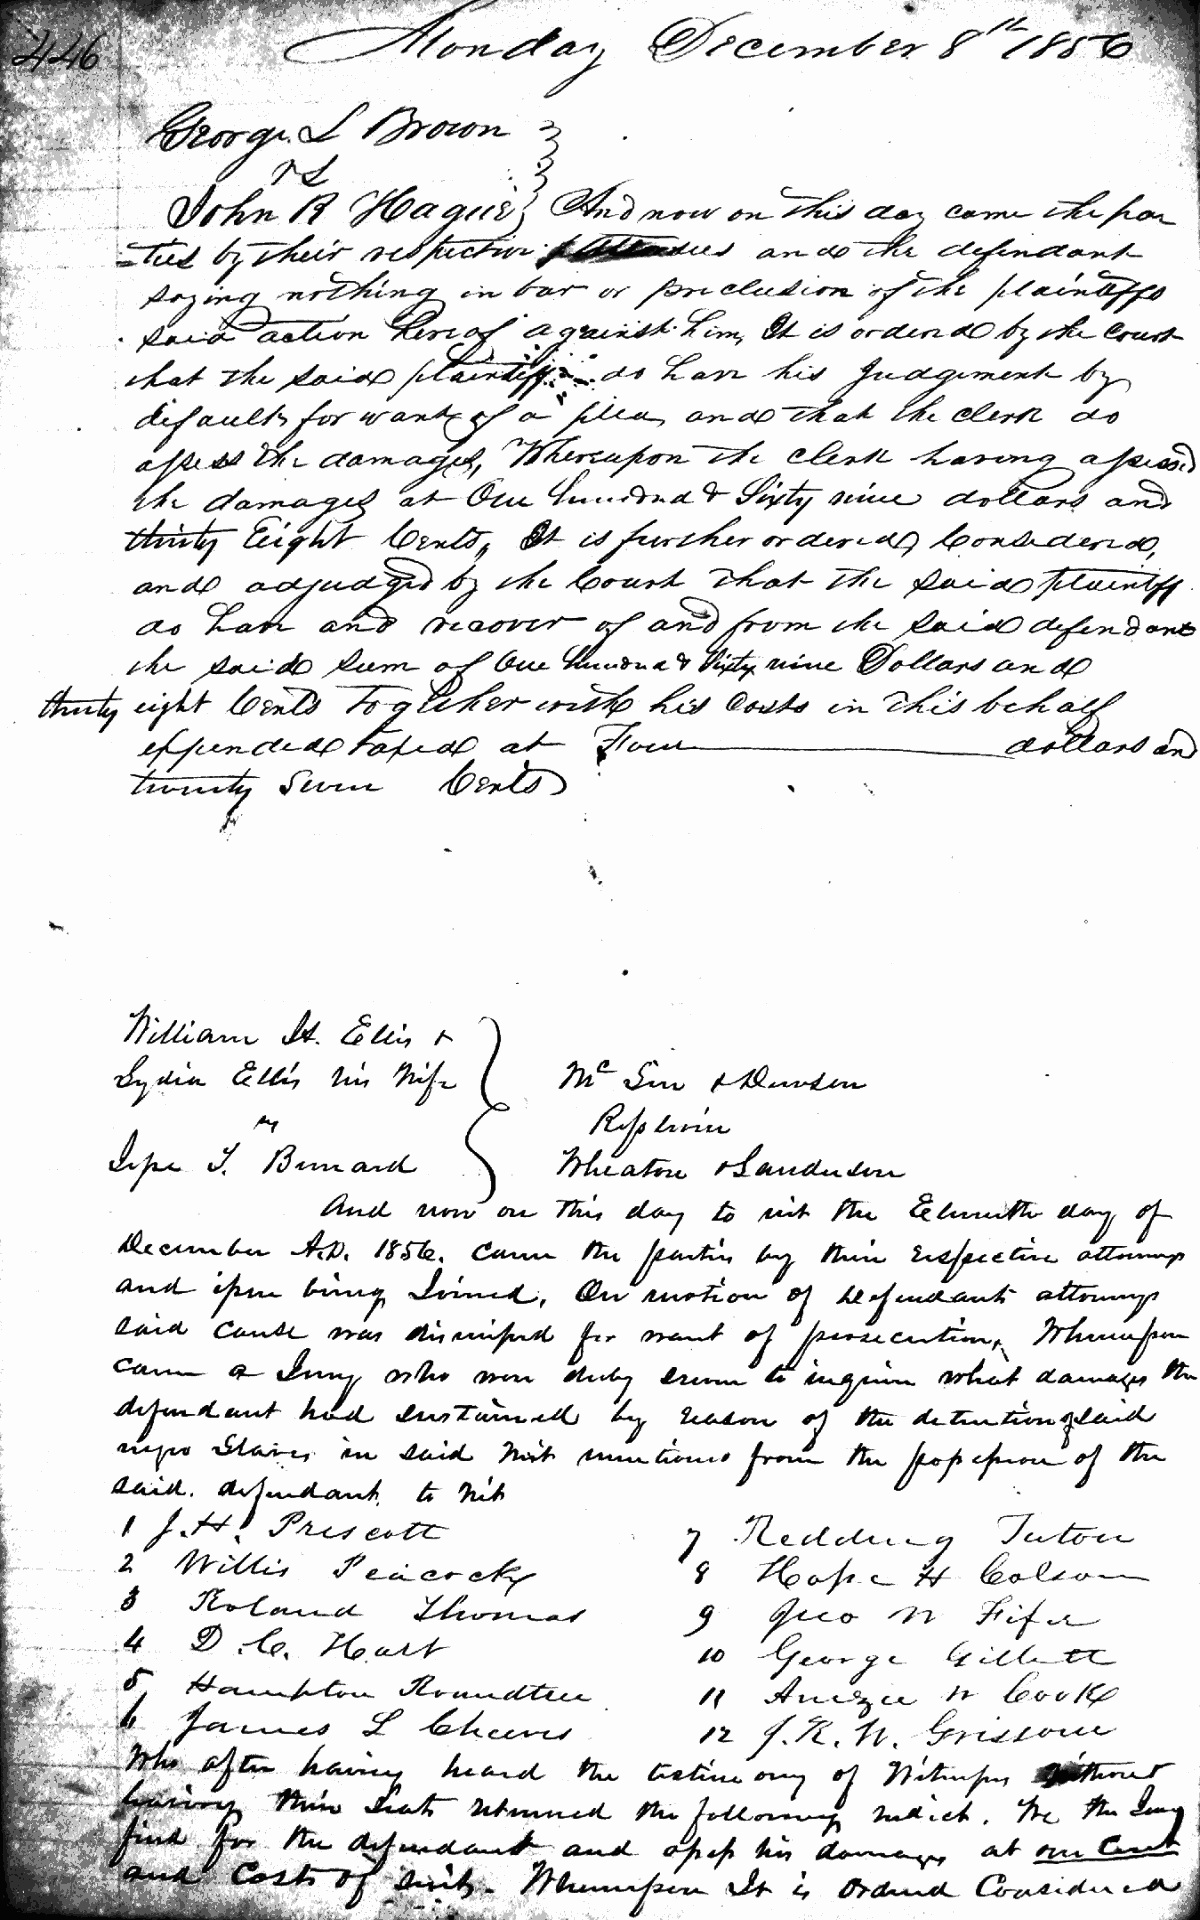 446
Monday December 8th 1856
George L Brown
vs
John R Hague And now on this day came the par
-ties by their respective attornies and the defendant
saying nothing in bar or preclusion of the plaintiffs
said action hereof against him, It is ordered by the Court
that the said plaintiff do have his Judgement by
default for want of a plea, and that the clerk do
assess the damages, Whereupon the clerk having assessed
the damages at One hundred & Sixty nine dollars and
thirty Eight Cents, It is further ordered, Considered,
and adjudged by the Court that the said plaintiff
do have and recover of and from the said defendant
the said sum of One hundred & Sixty nine Dollars and
thirty eight Cents together with his Costs in this behalf
expended taxed at Four dollars and
twenty Seven Cents
William H. Ellis &
Lydia Ellis his Wife Mc &
Replevin
vs
T. Wheaton & Sanderson
And now on this day to wit the Eleventh day of
December A.D. 1856. came the parties by their respective attorneys
and issue being Joined. On motion of Defendants attorneys
said cause was dismissed for want of prosecution, Whereupon
came a Jury who were duly sworn to inquire what damages the
defendant had sustained by reason of the detention of said
negro Slaves in said Writ mentioned from the possession of the
said. defendant. to Wit
1 J. H. Prescott
2 Willis Peacock
3 Roland Thomas
4 D. C. Hart
5 Hampton Roundtree
6 James L Cheevis
7 Redding Tuton
8 Hope H Colson
9 Geo W Fifer
10 George Gillett
11 W Cook
12 J. R. W. Grissom
Who after having heard the testimony of Witnesses without
leaving their Seats returned the following verdict. We the Jury
find for the defendant and assess his damages at one Cent
and Costs of suit. Whereupon It is Ordered Considered